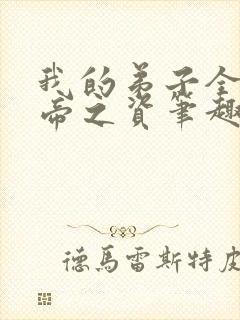 我的弟子全
帝之資筆趣
德馬雷斯特皮